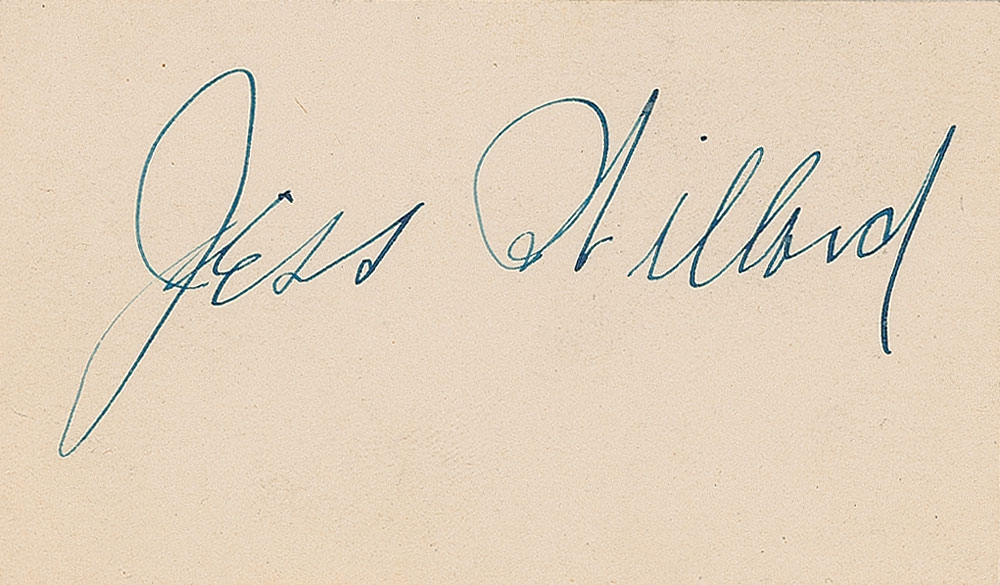 Jess Willard